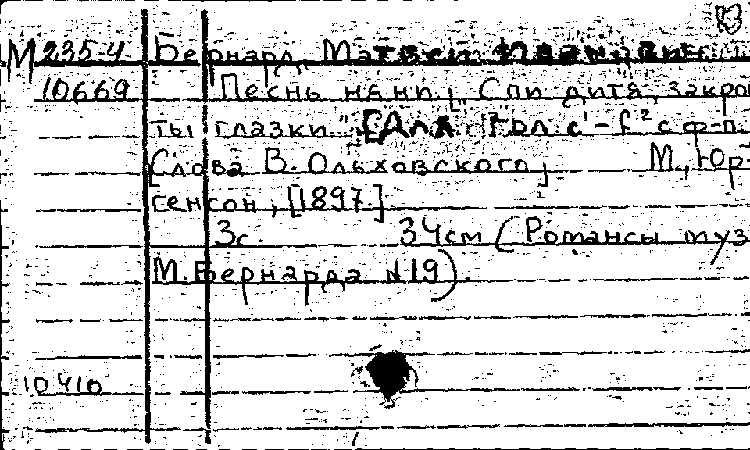 М 235-4 Бернард, Матвей Иванович
10669 Песнь няни. „Спи дитя, закро
ты глазки" [Для гол. c¹-f² с ф-п.
Слова В. Ольховского] М., Юр
генсон, [1897]
3с. 34см (Романсы муз
М. Бернарда №19).
10410